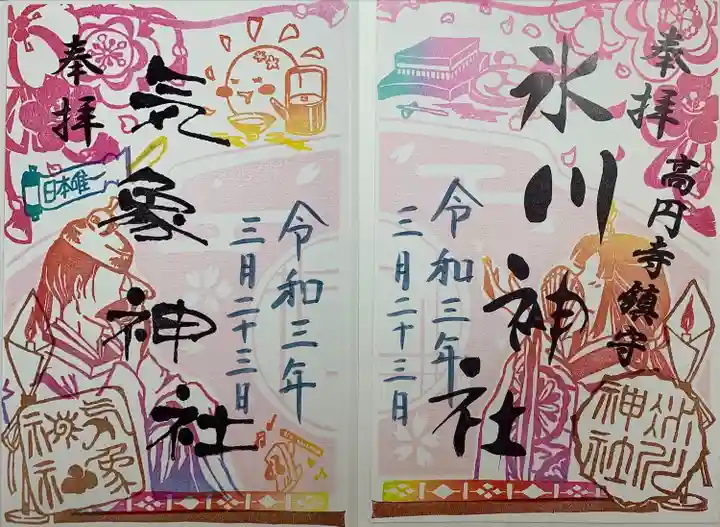 奉拝
高円寺鎮守
氷川神社
令和三年
三月二十三日
氷川神社
奉拝
日本唯一
気象神社
令和三年
三月二十三日
気象神社